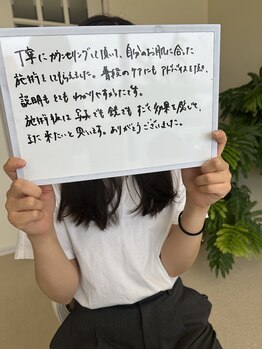 丁寧にカウンセリングして頂いて、自分のお肌に合った
施術をしてもらえました。普段のケアにもアドバイスを頂き、
説明もとてもわかりやすかったです。
施術後は 自分でも 鏡で すごく 効果を感じて、
また 来たいと 思います。ありがとうございました。